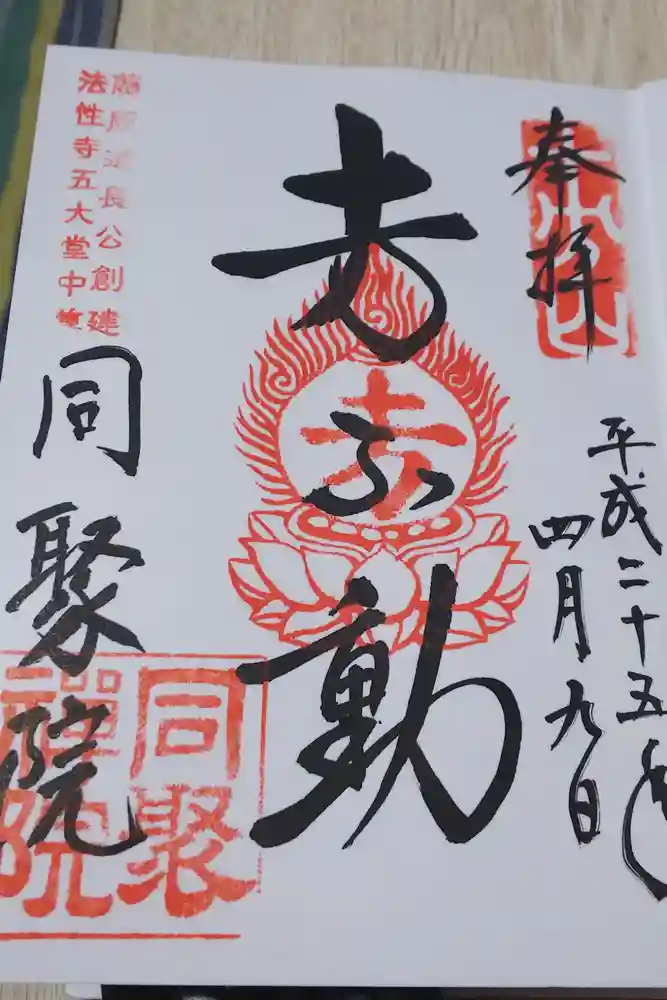 奉拝
平成二十五年
四月九日
十万不動
藤原道長公創建
法性寺五大堂中
同聚院
同聚
禪院